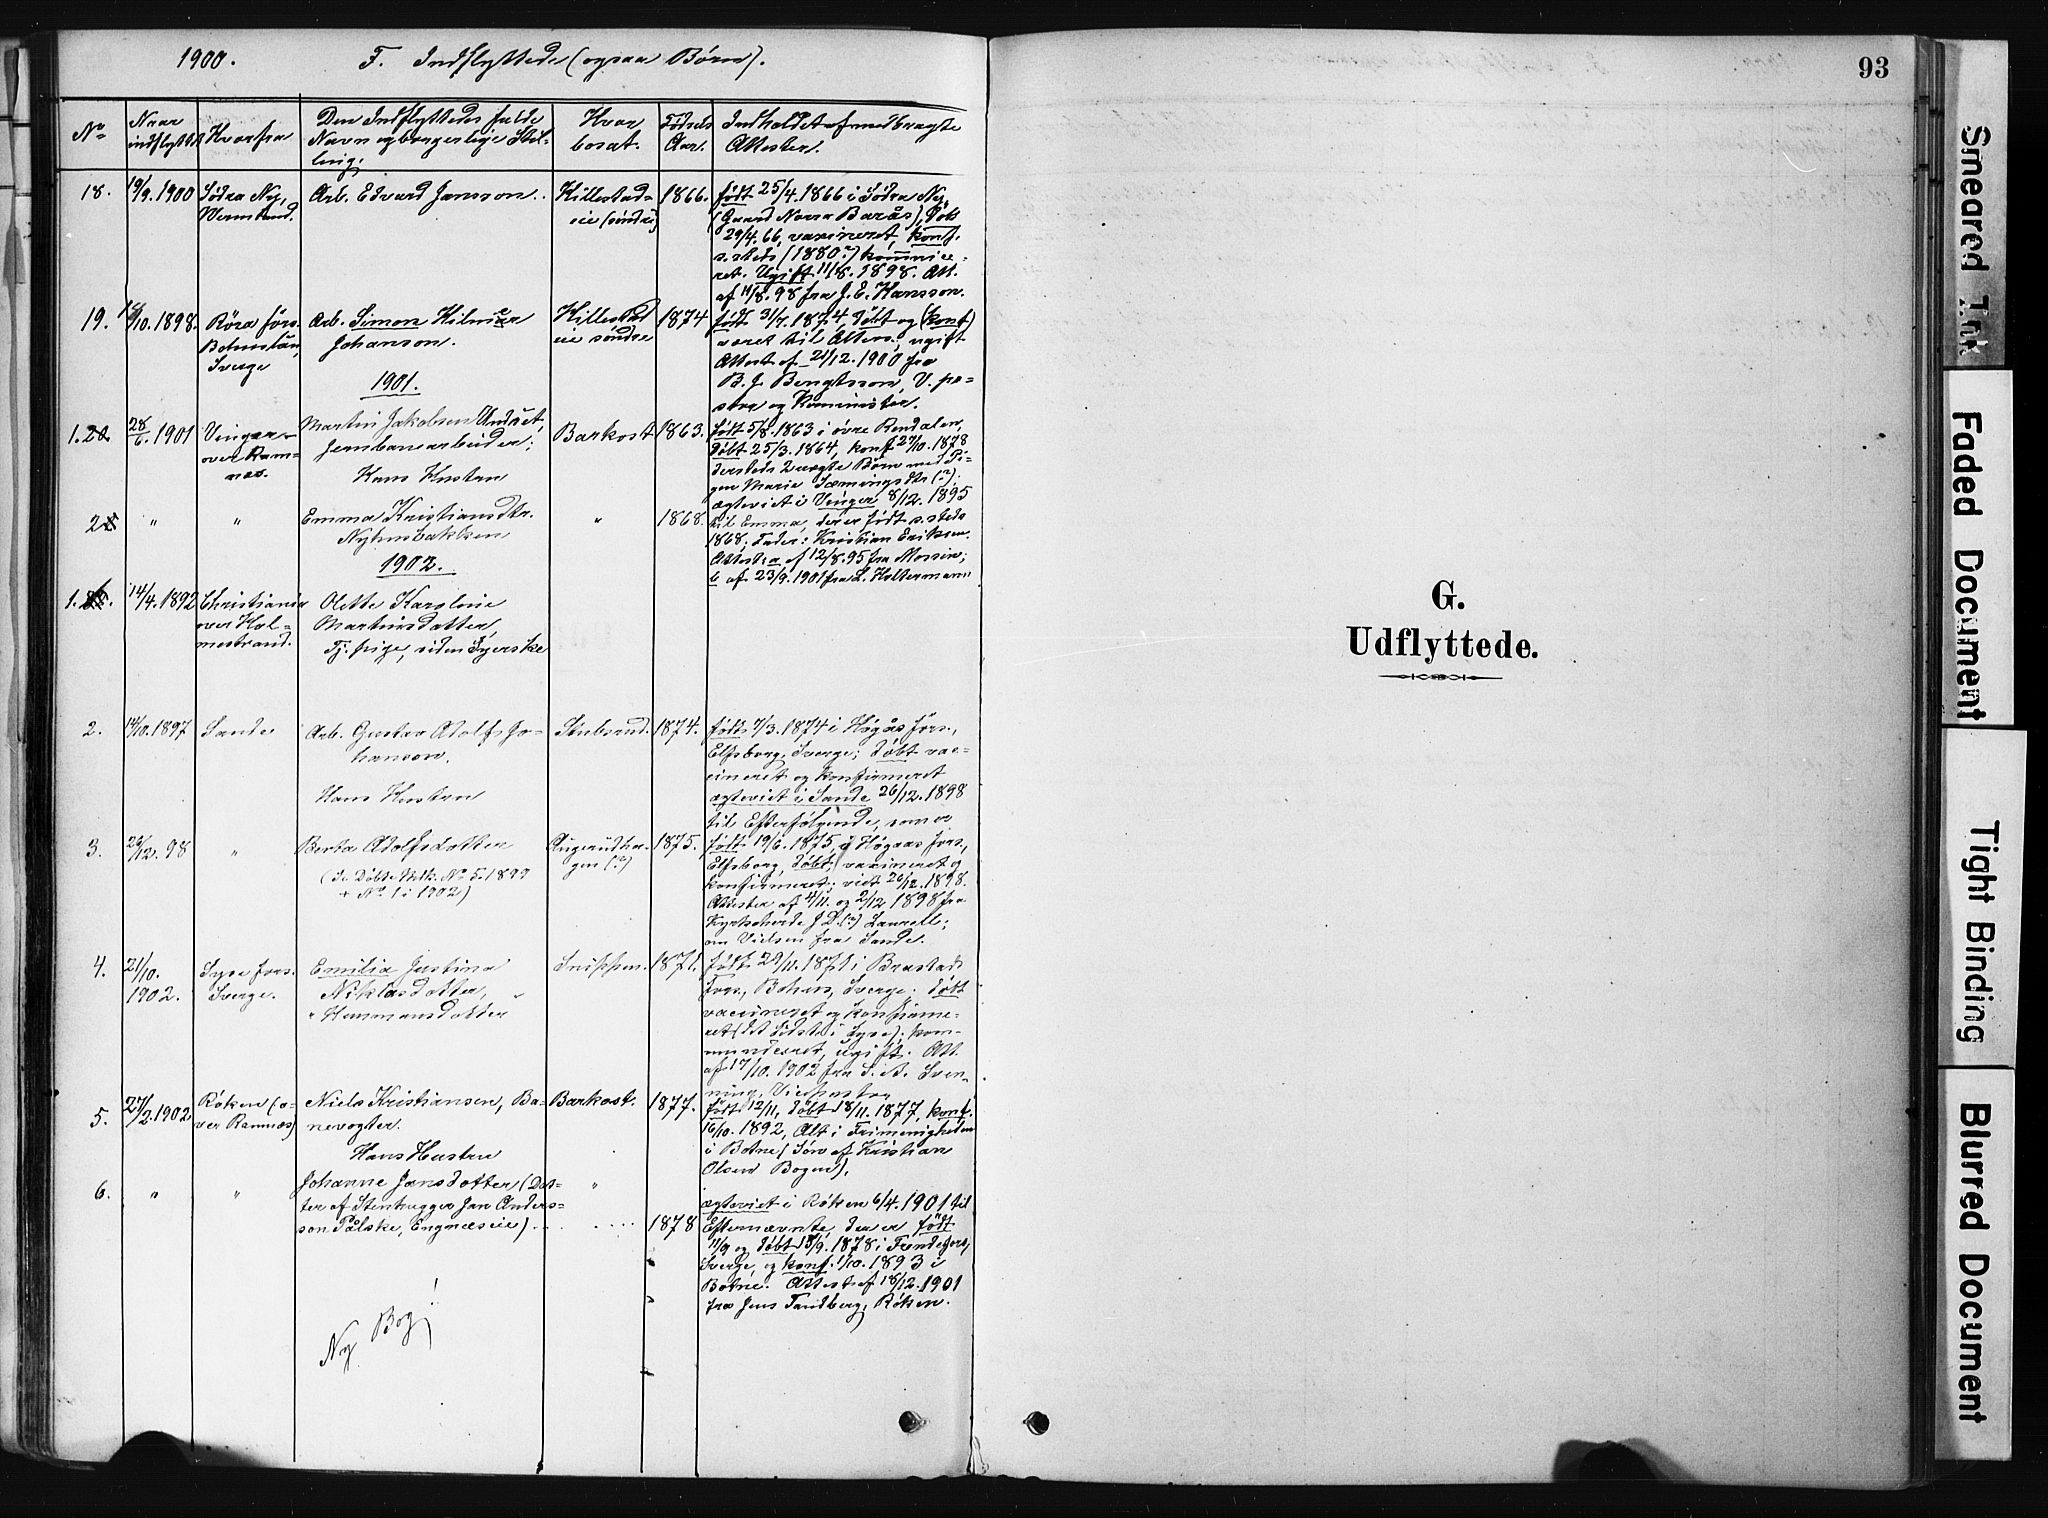 1900. F. Indflyttede (ogsaa Børn).
No
Naar indflyttet
Hvorfra
Den Indflyttedes fulde Navn og borgerlige Stilling.
Hvor bosat.
Fødsels Aar.
Indholdet af medbragte Attester.
18. 19/9.1900 Södra Ny, Vermland. Arb. Edvard Jansson. Killestad-eie (søndre) 1866.
født 25/4.1866 i Södra Ny,
(Gaard Norra Barås), Døbt
29/4.66, vaxineret, konf.
s.steds (1880?)
ret. Ugift 11/8.1898. Att.
af 11/8.98 fra J. E. Hansson.
19. /10.1898. Röra förs. Sverge Arb. Simon Hilmer Johanson. Killestad eie søndre 1874
født 3/7.1874, døbt og (konf)
været til Alters, ugift
Attest af 21/12.1900 fra
B. J. Bengtsson, V. pa-
stor og Kominister.
1901.
1. 28/6.1901 Vinger over Ramnæs. Martin Jakobsen Undset, Jernbanearbeider; Barkost 1863.
født 5/8.1863 i øvre Rendalen,
Døbt 25/3.1864, konf 27/10.1878
dersteds 2 uægte Børn med Pi-
gen Marie Sæmingsdtr (?).
ægteviet i Vinger 8/12.1895
Hans Hustru
2 " " Emma Kristiansdtr. " 1868.
til Emma, der er født s. steds
1868; Fader: Kristian Eriksen.
Attester a af 12/8.95 fra
b af 23/9.1901 fra L. Holtermann
1902.
1. 14/4.1892 Christiania over Holmestrand. Olette Karoline Martinsdatter, Tj. pige, siden Syerske
2. 14/10.1897 Sande Arb. Gustav Adolf Johanson. Stubsrud. 1874.
født 7/3.1874 i Högås förs.,
Elfsborg, Sverge; døbt vac-
cineret og konfirmeret
ægteviet i Sande 26/12.1898
til Efterfølgende, som er
Hans Hustru
3. 26/12.98 " Berta Adolfsdotter Angerudhagen (?) 1875.
(se Døbte Mk. No 5.1899
+ No 1 i 1902)
født 19/6.1875, i Högaas förs.,
Elfsborg, døbt, vaxineret og
konfirmeret; viet 26/12.1898.
Attester af 4/11. og 2/12 1898 fra
Kyrkoherde J. D. (?) Laurell;
om Vielsen fra Sande.
4. 21/10.1902. Lyse förs. Sverge. Emilia Justina Niklasdotter, Hermansdotter Snippen. 1871.
født 29/11.1871 i Brastad
förs., Bohus, Sverge; døbt
vaccineret og konfirme-
ret (det sidste i Lyse); kom-
municeret, ugift. Att.
af 17/10.1902 fra S. A. Sven-
ning, Vicepastor
5. 27/2.1902 Røken (over Ramnæs) Niels Kristiansen, Banevogter. Barkost. 1877.
født 12/11, døbt 18/11.1877, konf.
16/10.1892, Alt i Frimenigheden
i Botne (Søn af Kristian
Olsen Bogen).
Hans Hustru
6. " " Johanne Jansdotter (Datter af Stenhugger Jan Andersson Pålske, Engnæseie) " 1878
ægteviet i Røken 6/4.1901 til
Efternævnte, der er født
11/9 og døbt 15/9.1878 i Frendefors,
Sverge, og konf. 1/10.1893 i
Botne. Attest af 18/12.1901
fra Jens Tandberg, Røken.
Ny Bog!
93
G.
Udflyttede.
Smeared Ink
Faded Document
Tight Binding
Blurred Document